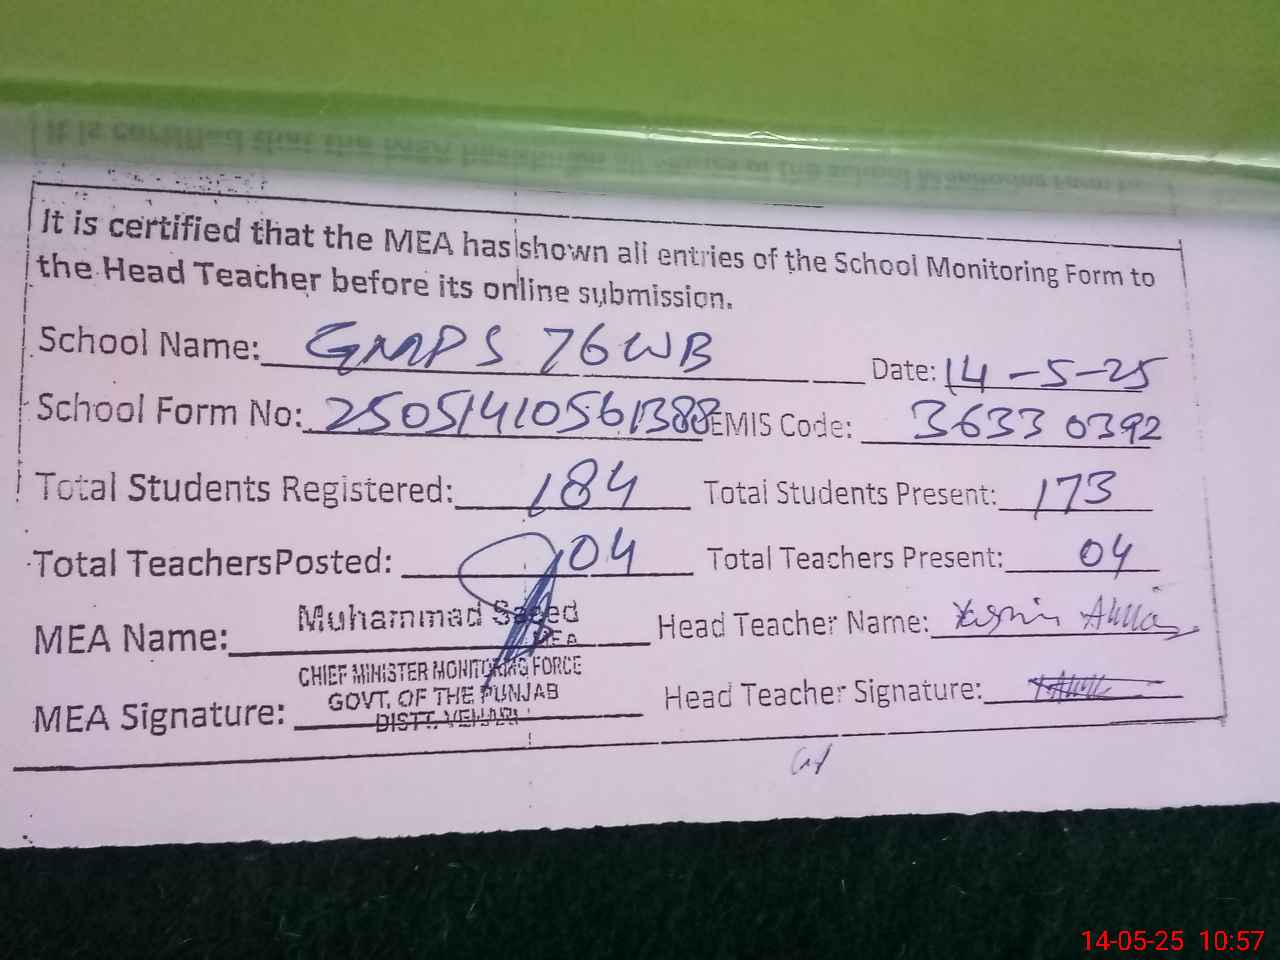 It is certified that the MEA has shown all entries of the School Monitoring Form to
the Head Teacher before its online submission.
School Name: GMPS 76WB Date: 14-5-25
School Form No: 25051410561388 EMIS Code: 36330392
Total Students Registered: 184 Total Students Present: 173
Total TeachersPosted: 04 Total Teachers Present: 04
MEA Name: Muhammad Saeed Head Teacher Name: Yasmin
MEA
CHIEF MINISTER MONITORING FORCE
GOVT. OF THE PUNJAB
MEA Signature: DISTT. VEHARI Head Teacher Signature:
14-05-25 10:57